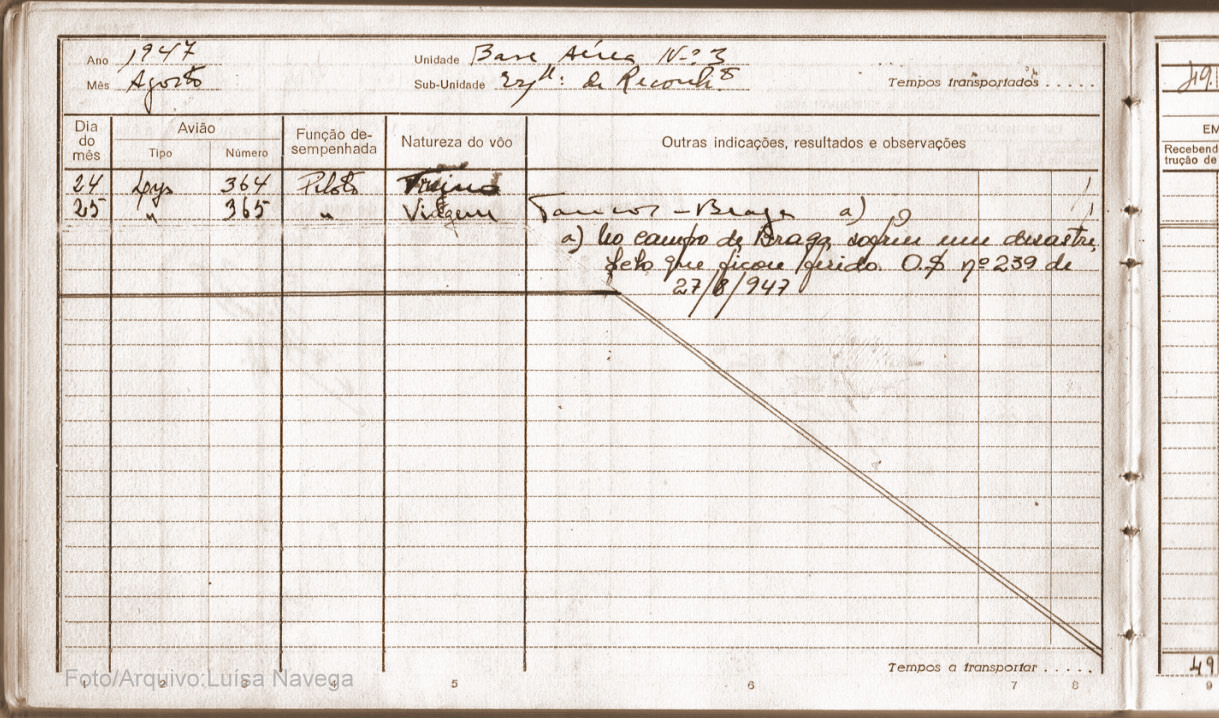 Ano 1947 Unidade Base Aérea Nº 3
Mês Agosto Sub-Unidade Esqª: de Reconh.º Tempos transportados . . . . .
Dia do mês Avião Função desempenhada Natureza do vôo Outras indicações, resultados e observações
Tipo Número
24 Lys 364 Piloto Treino 1
25 " 365 " Viagem Tancos - Braga a) 1
a) No campo de Braga, sofreu um desastre,
pelo que ficou ferido. O.S. nº 239 de
27/8/947
Tempos a transportar . . . . .
Foto/Arquivo:Luísa Navega
1 2 3 4 5 6 7 8
49.
EM
Recebend
trução de
49
9